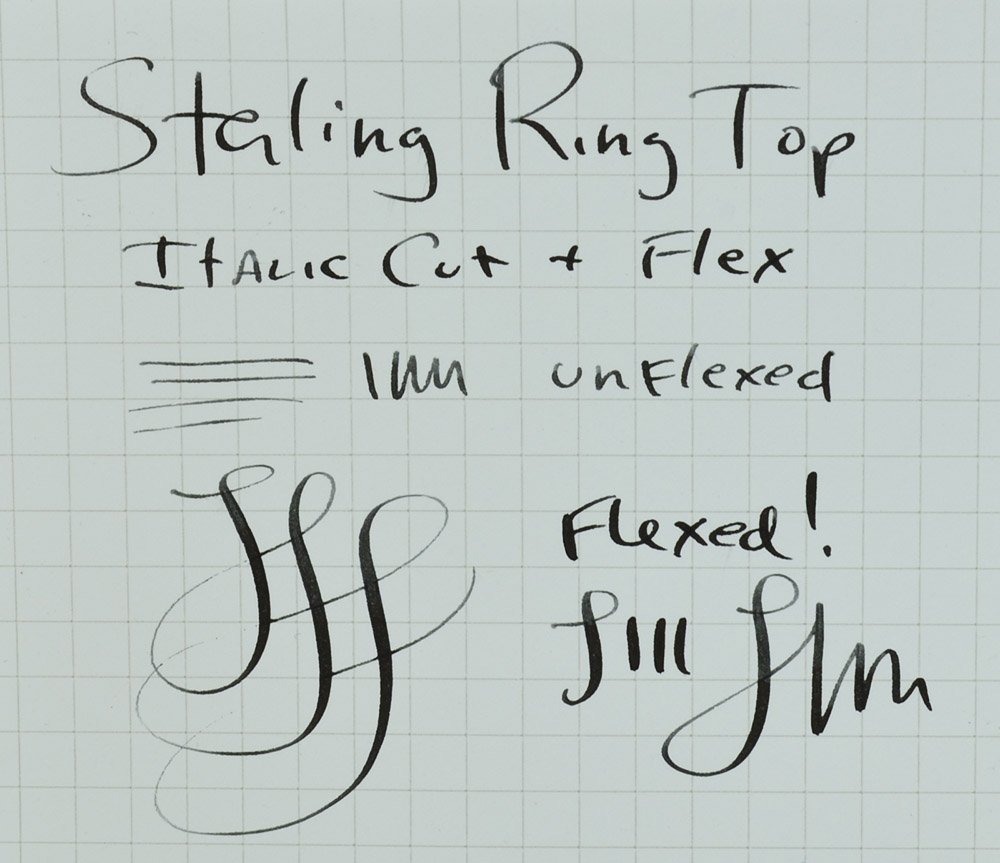 Sterling Ring Top
Italic Cut + Flex
unflexed
Flexed!